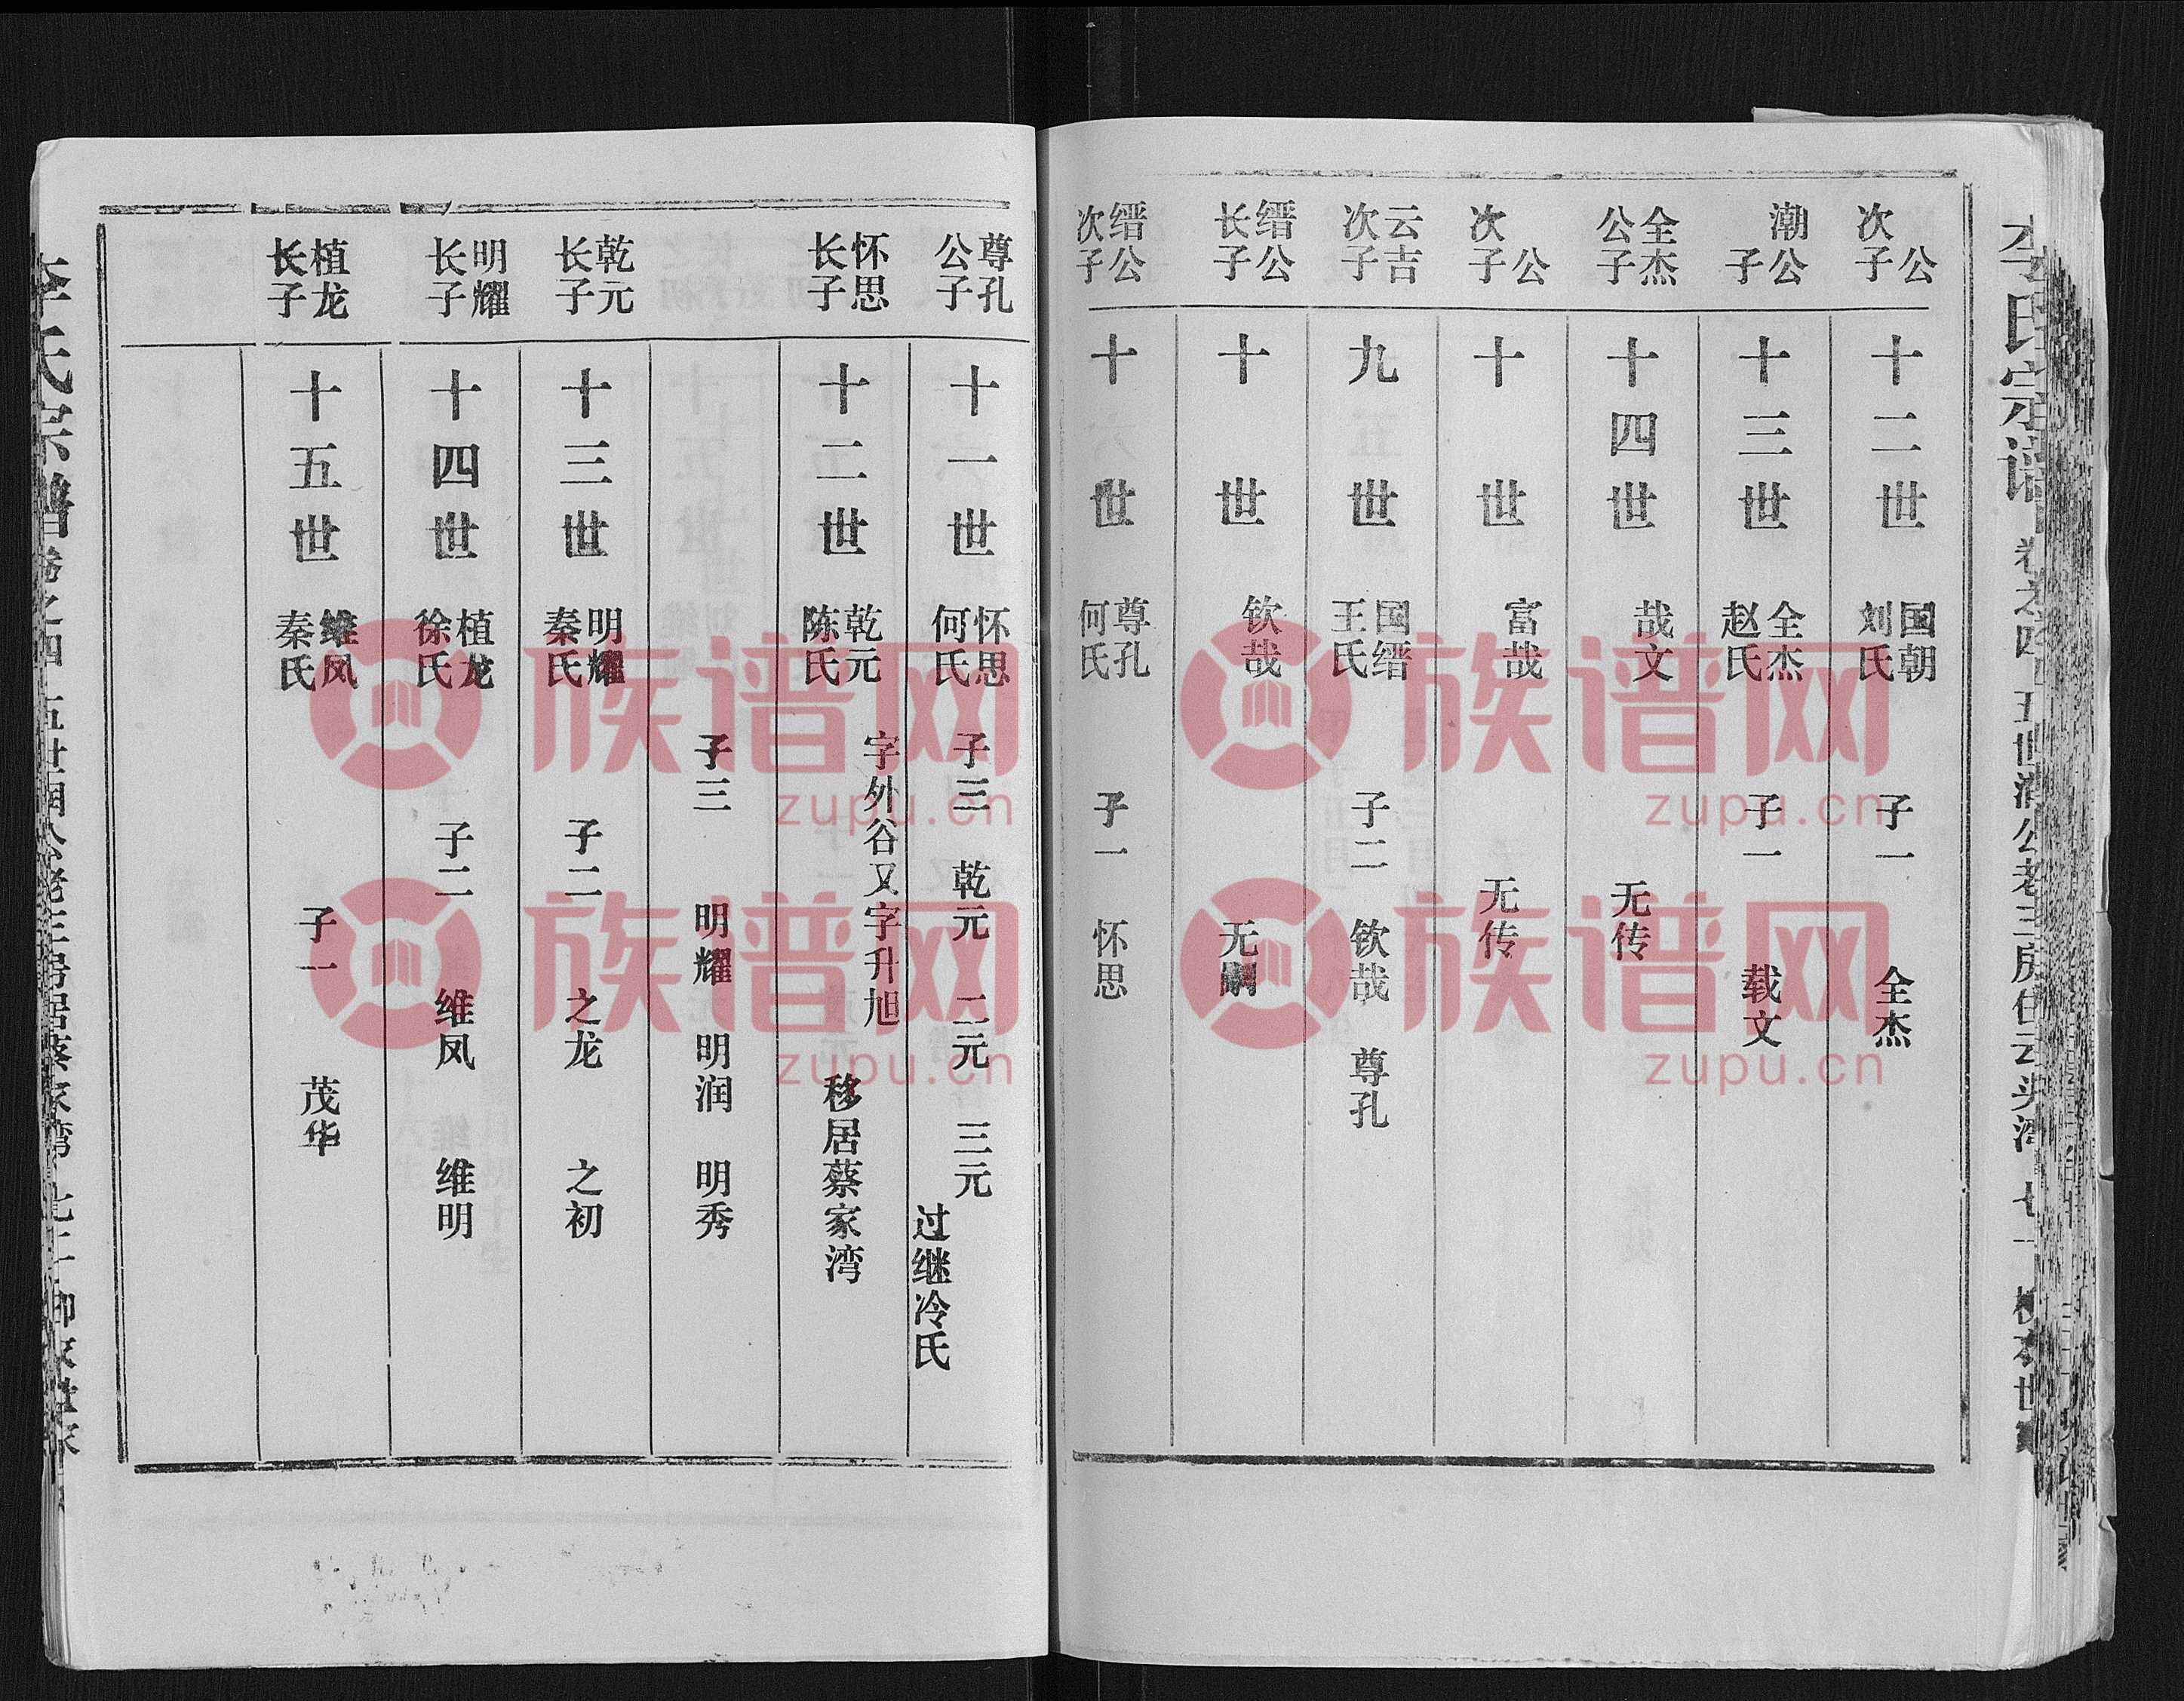 李氏宗谱 卷之四
公
次子
十二世
国朝
刘氏
子一 全杰
潮公
子
十三世
全杰
赵氏
子一 载文
全杰
公子
十四世
哉文
无传
公
次子
十世
富哉
无传
云吉
次子
九世
国缙
王氏
子二 钦哉 尊孔
缙公
长子
十世
钦哉
无嗣
缙公
次子
十世
尊孔
何氏
子一 怀思
尊孔
公子
十一世
怀思
何氏
子三 乾元 二元 三元
过继冷氏
怀思
长子
十二世
乾元
陈氏
字外谷又字升旭
移居蔡家湾
子三 明耀 明润 明秀
乾元
长子
十三世
明耀
秦氏
子二 之龙 之初
明耀
长子
十四世
植龙
徐氏
子二 维凤 维明
植龙
长子
十五世
维凤
秦氏
子一 茂华
李氏宗谱 卷之四
族谱网
zupu.cn
族谱网
zupu.cn
族谱网
zupu.cn
族谱网
zupu.cn